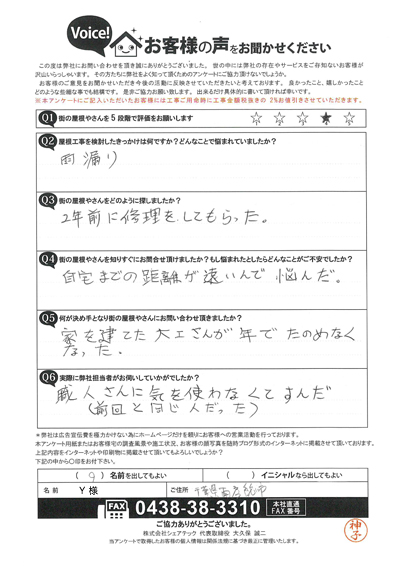 Voice!
お客様の声をお聞かせください
この度は弊社にお問い合わせを頂き誠にありがとうございました。 世の中には弊社の存在やサービスをご存知ないお客様が
沢山いらっしゃいます。 その方たちに弊社をよく知って頂くためのアンケートにご協力頂けないでしょうか。
お客様のご意見をお聞かせいただき今後の活動に反映させていただきたいと考えております。 良かったこと、嬉しかったこと
どのような些細な事でも結構です。 是非ご協力お願い致します。 出来るだけ具体的に書いて頂ければ幸いです。
※本アンケートにご記入いただいたお客様には工事ご用命時に工事金額税抜きの 2%お値引きさせていただきます。
Q1 街の屋根やさんを5段階で評価をお願いします ☆ ☆ ☆ ★ ☆
Q2 屋根工事を検討したきっかけは何ですか?どんなことで悩まれていましたか?
雨漏り
Q3 街の屋根やさんをどのように探しましたか?
2年前に修理をしてもらった。
Q4 街の屋根やさんを知りすぐにお問合せ頂けましたか?もし悩まれたとしたらどんなことがご不安でしたか?
自宅までの距離が遠いんで悩んだ。
Q5 何が決め手となり街の屋根やさんにお問い合わせ頂きましたか?
家を建てた大工さんが年でたのめなく
なった.
Q6 実際に弊社担当者がお伺いしていかがでしたか?
職人さんに気を使わなくてすんだ
(前回と同じ人だった)
*弊社は広告宣伝費を極力かけない為にホームページだけを頼りにお客様への営業活動を行っております。
本アンケート用紙またはお客様宅の調査風景や施工状況、お客様の顔写真を随時ブログ形式のインターネットに掲載させて頂いております。
上記内容をインターネットや印刷物に掲載させて頂いてもよろしいでしょうか?
下記の中から〇印をお付下さい。
( ) 名前を出してもよい ( ) イニシャルなら出してもよい
名前 Y様 ご住所 千葉県南房総市
FAX 0438-38-3310 本社直通 FAX番号
ご協力ありがとうございました。
株式会社シェアテック 代表取締役 大久保 誠二
当アンケートで取得したお客様の個人情報は関係法規に基づき厳正に管理いたします。
神子